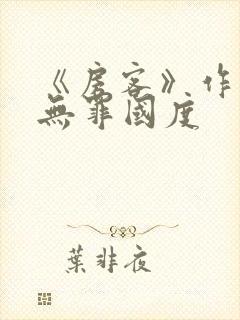 《房客》作
無罪國度
葉非夜